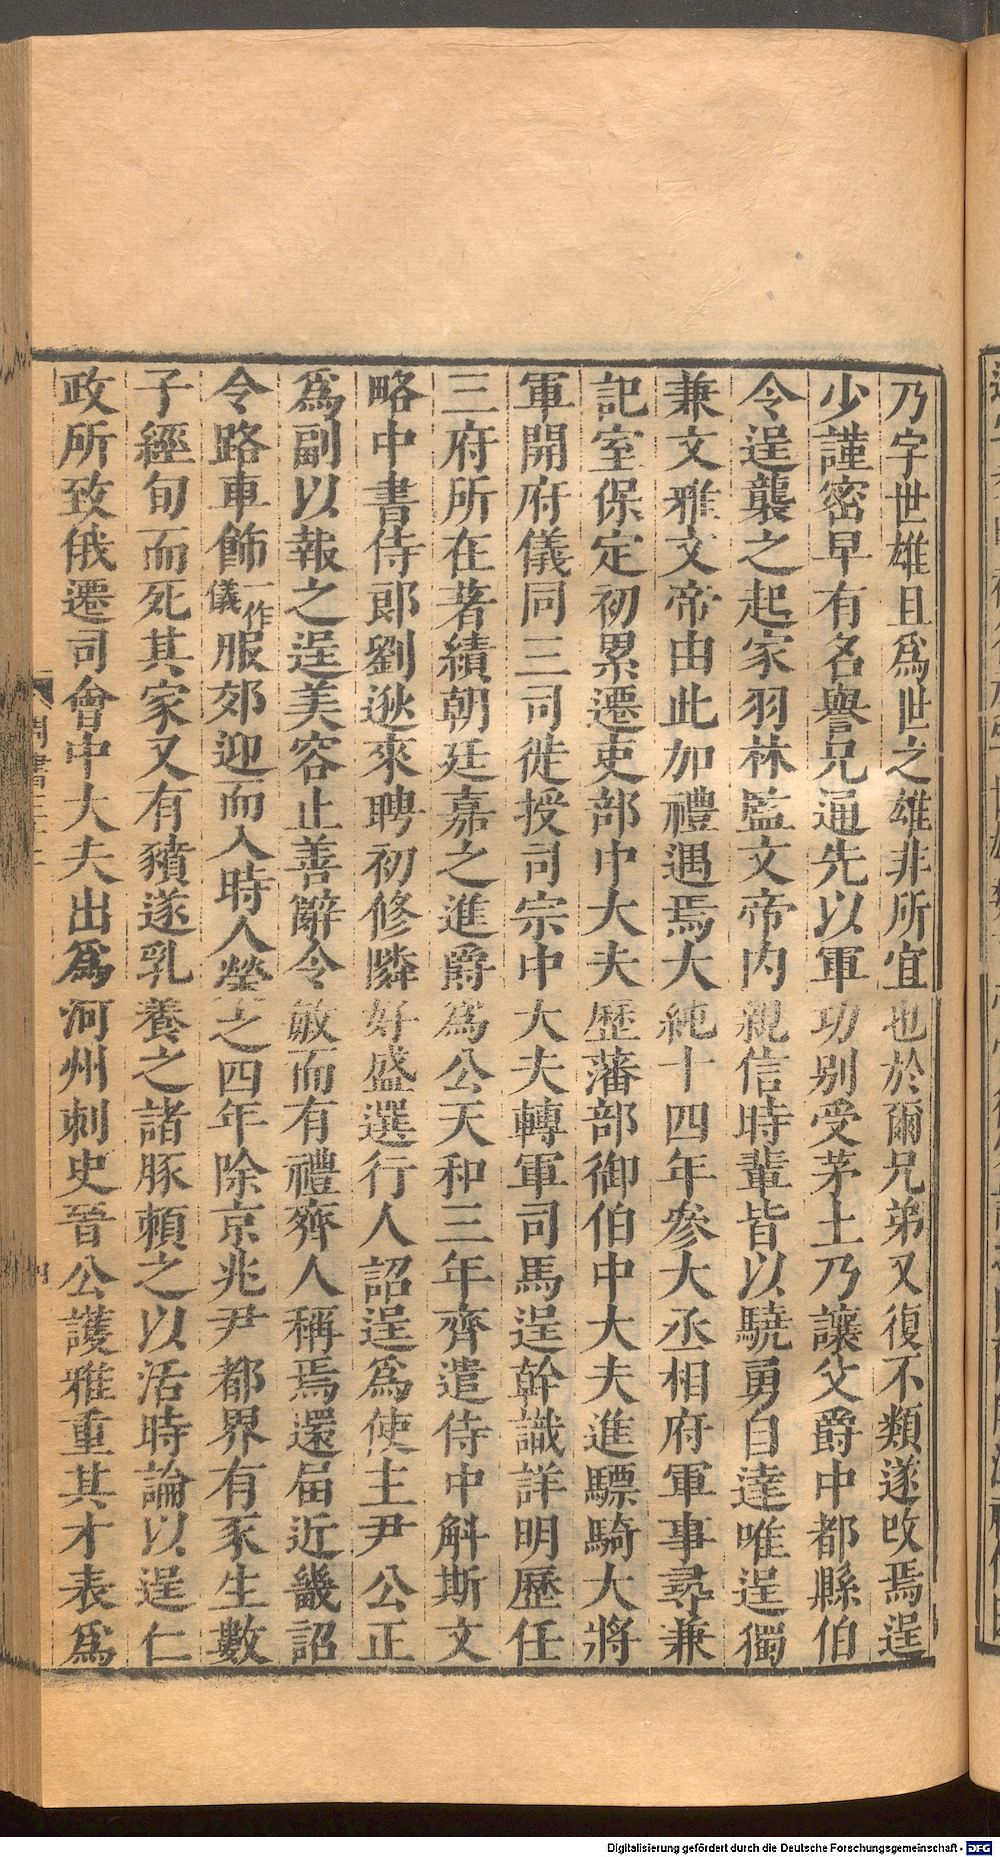 乃字世雄且爲世之雄非所宜也於爾兄弟又復不類遂改焉逞
少謹密早有名譽兄通先以軍功别受茅土乃讓父爵中都縣伯
令逞襲之起家羽林監文帝內親信時輩皆以驍勇自達唯逞獨
兼文雅文帝由此加禮遇焉大純十四年參大丞相府軍事尋兼
記室保定初累遷吏部中大夫歷藩部御伯中大夫進驃騎大將
軍開府儀同三司徙授司宗中大夫轉軍司馬逞幹識詳明歷任
三府所在著績朝廷嘉之進爵爲公天和三年齊遣侍中斛斯文
略中書侍郎劉逖來聘初修隣好盛選行人詔逞爲使主尹公正
爲副以報之逞美容止善辭令敏而有禮齊人稱焉還届近畿詔
令路車飾一作儀服郊迎而入時人榮之四年除京兆尹都界有豕生數
子經旬而死其家又有豶遂乳養之諸豚賴之以活時論以逞仁
政所致俄遷司會中大夫出爲河州刺史晉公護雅重其才表爲
Digitalisierung gefördert durch die Deutsche Forschungsgemeinschaft - DFG